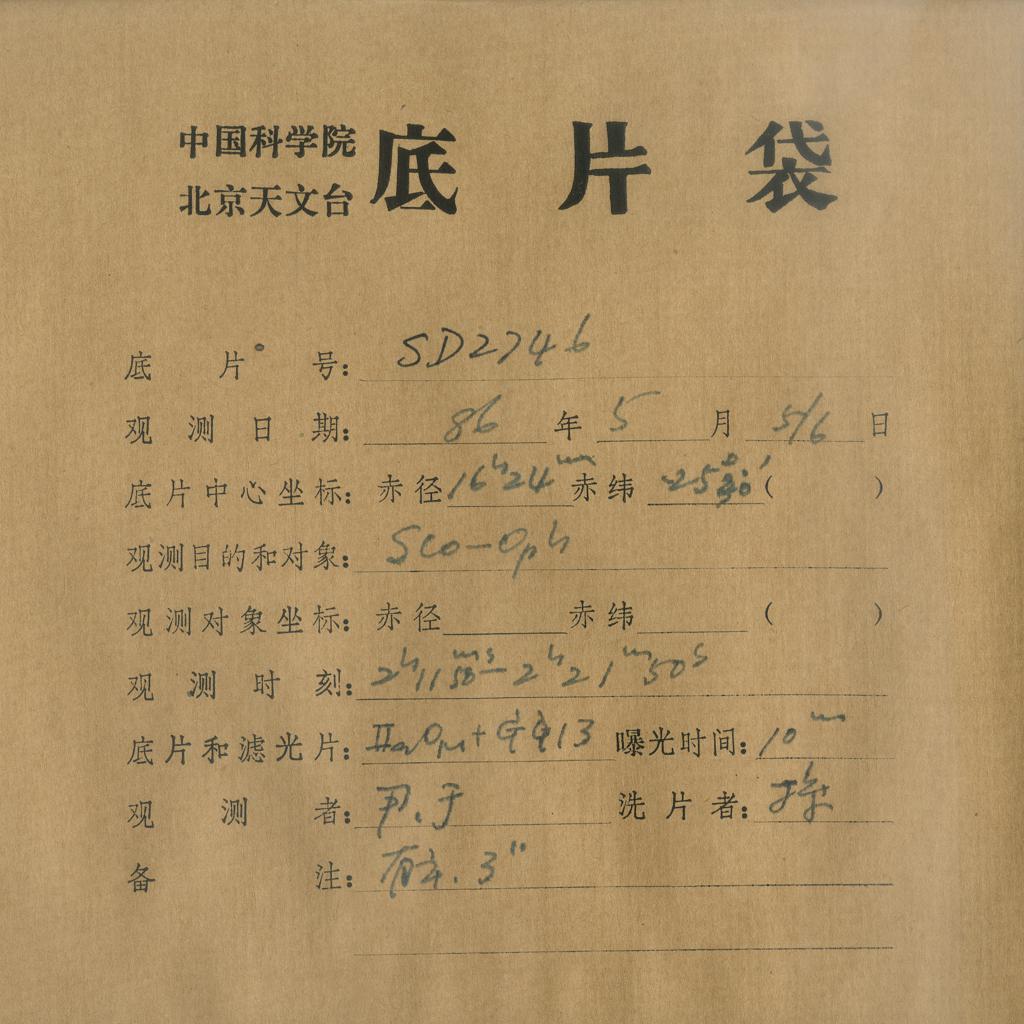 中国科学院
北京天文台
底片袋
底片号: SD2746
观测日期: 86年5月5/6日
底片中心坐标: 赤径16h24m赤纬-25°30′( )
观测目的和对象: Sco-Oph
观测对象坐标: 赤径 赤纬 ( )
观测时刻: 2h11m50s-2h21m50s
底片和滤光片: IIaO + 13 曝光时间: 10m
观测者: 尹.于 洗片者:
备注: 3″